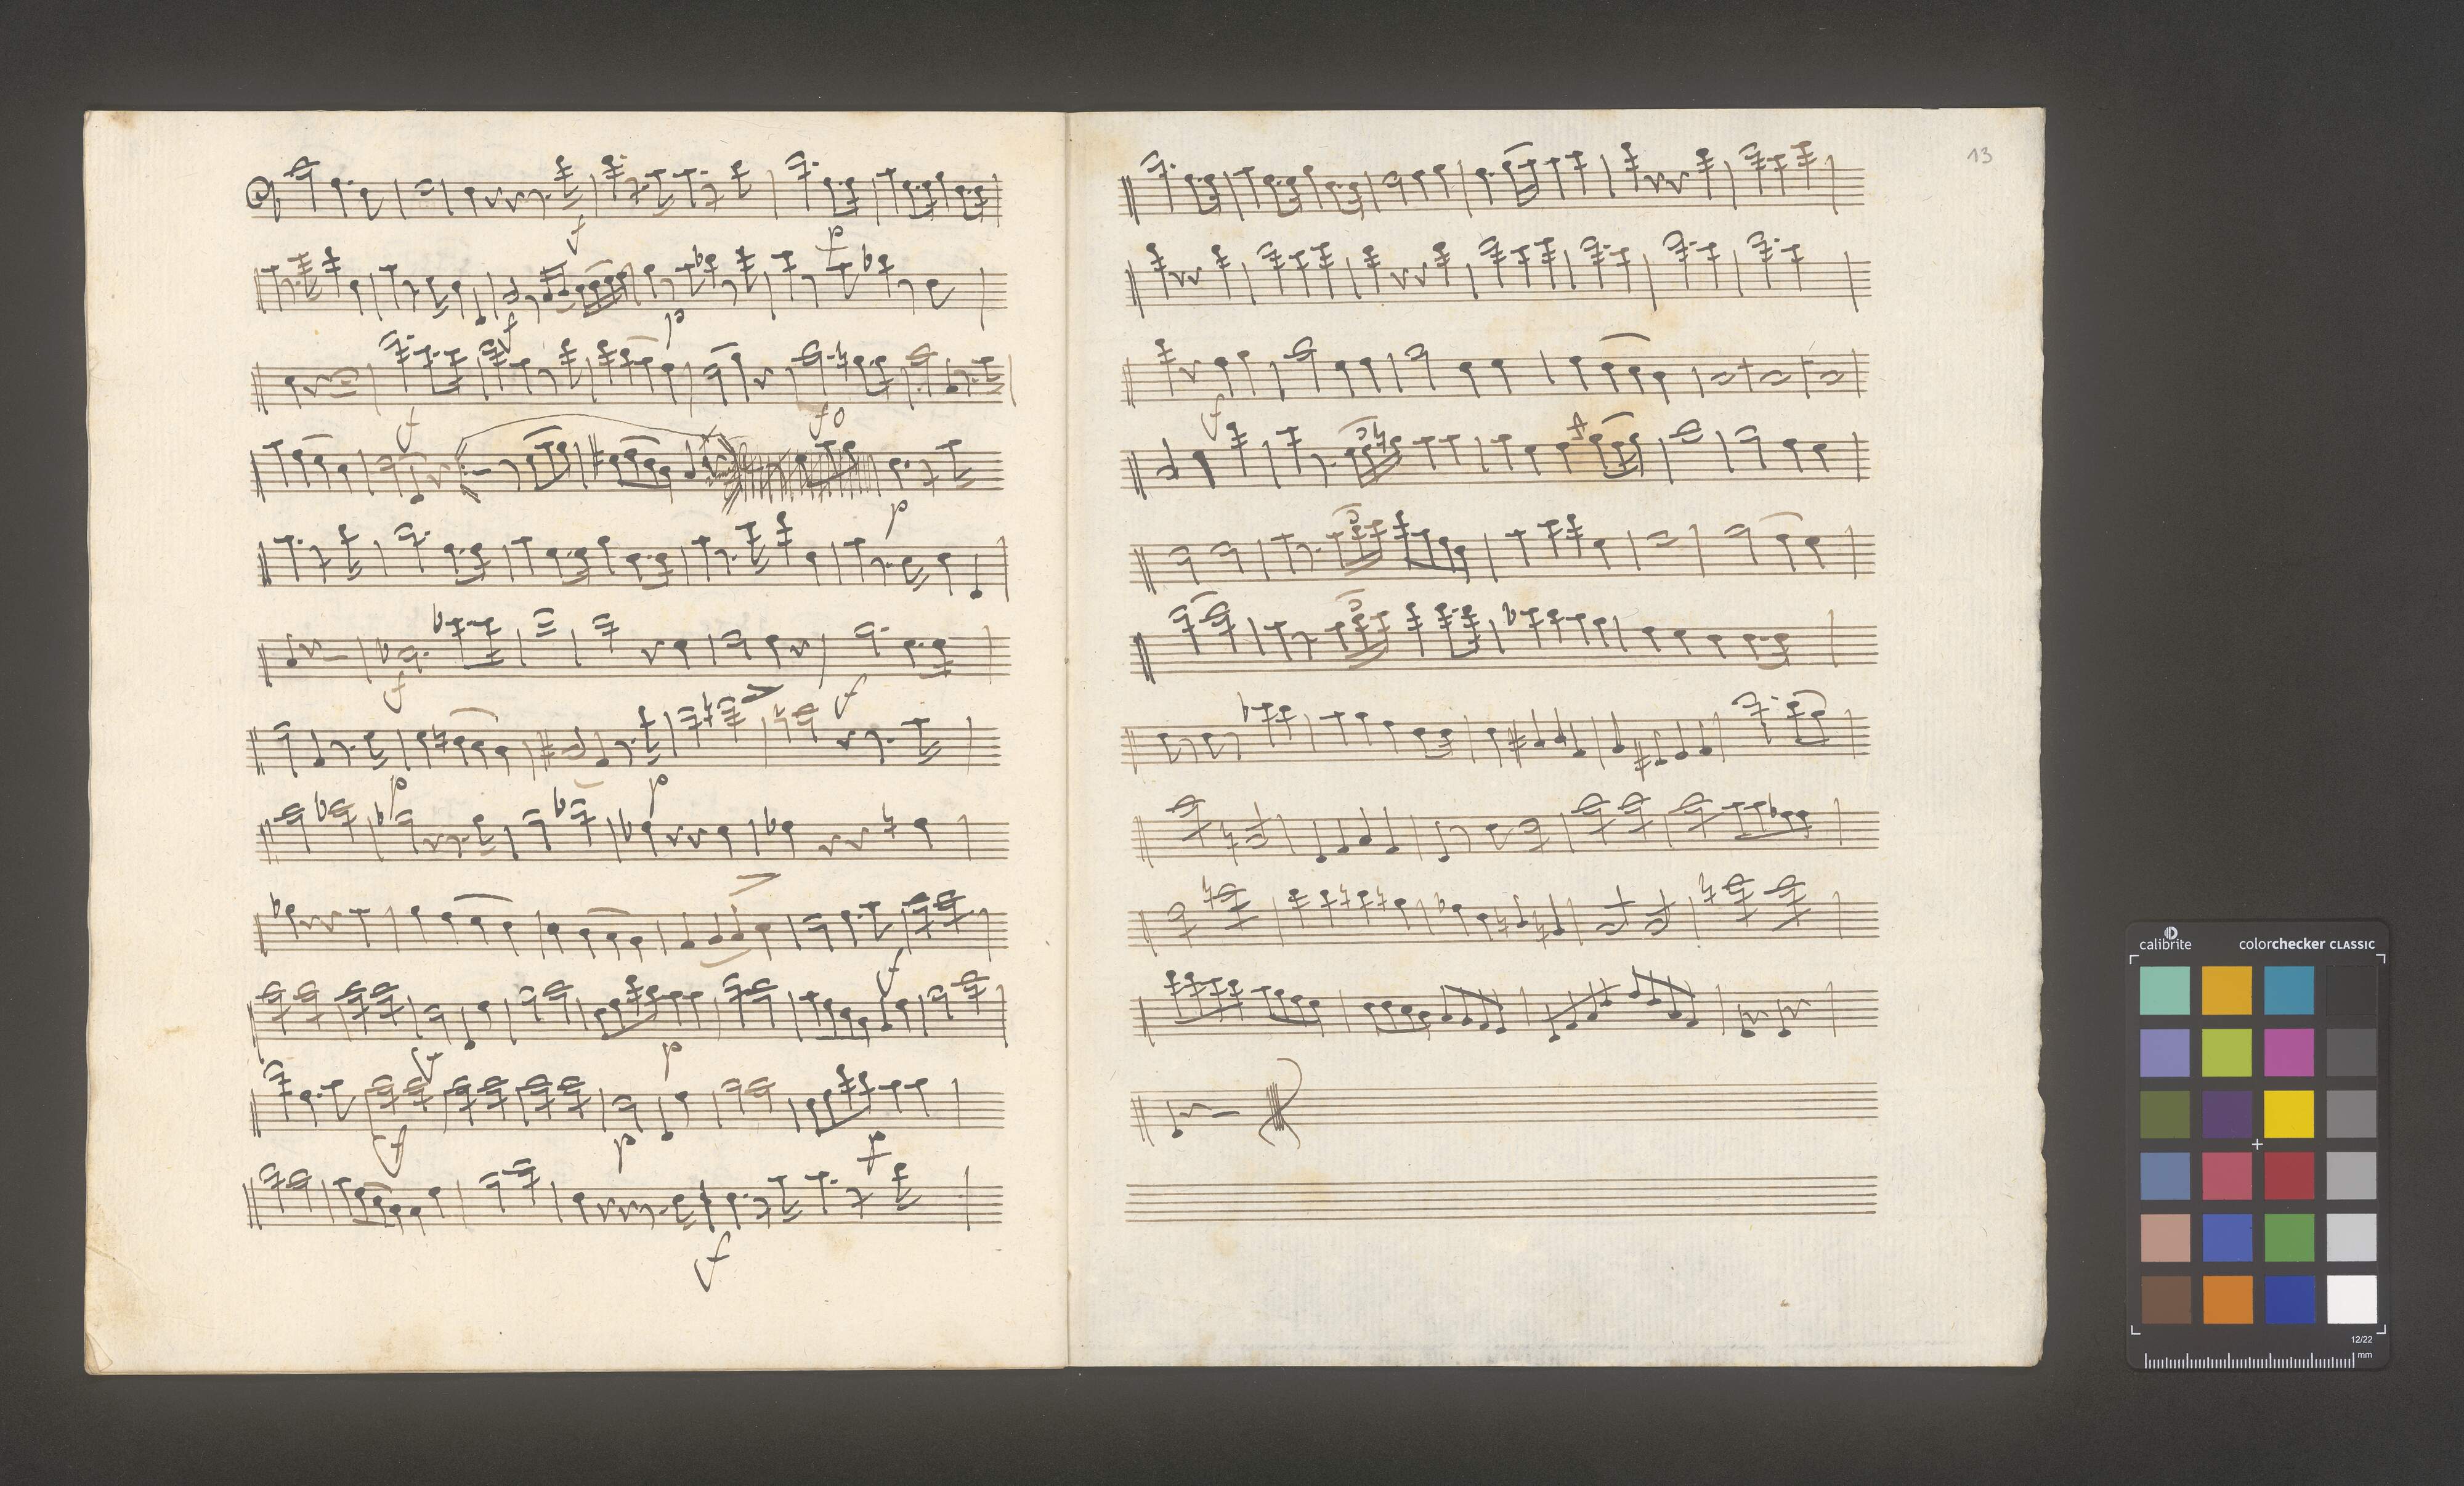 f
p
f
p
f
fo
p
f
f
p
p
f
p
f
f
p
f
f
13
f
calibrite
colorchecker CLASSIC
12/22
mm